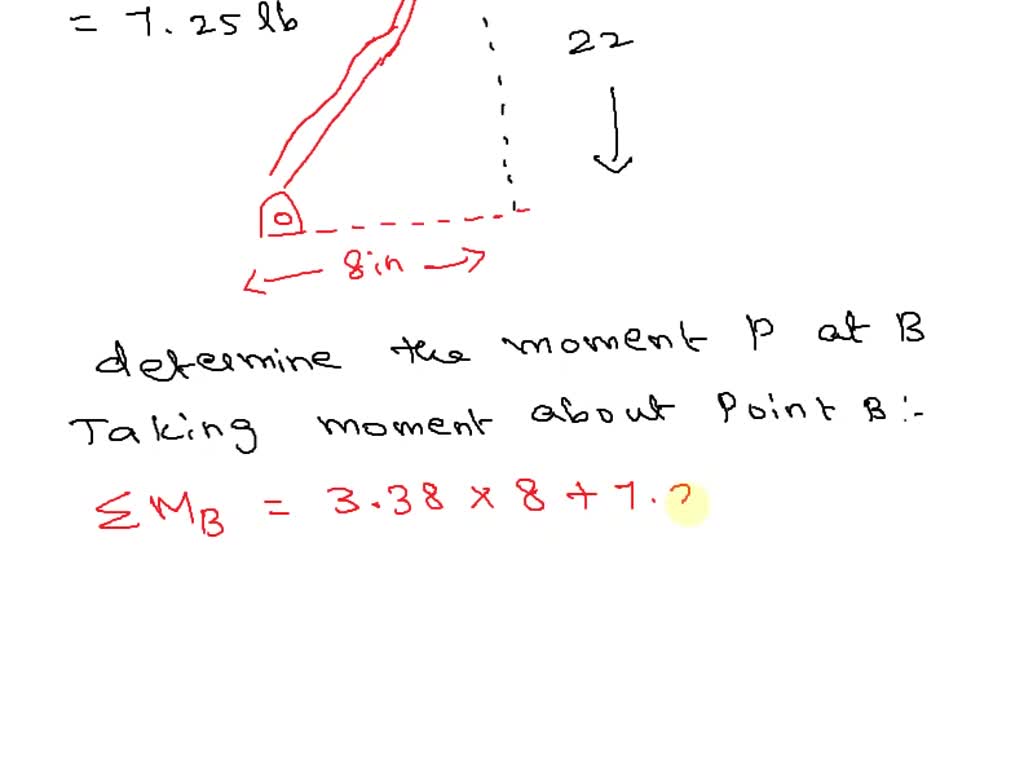 = 7.25 lb
22
8in
determine the moment P at B
Taking moment about Point B :-
ΣM_B = 3.38 × 8 + 7.2